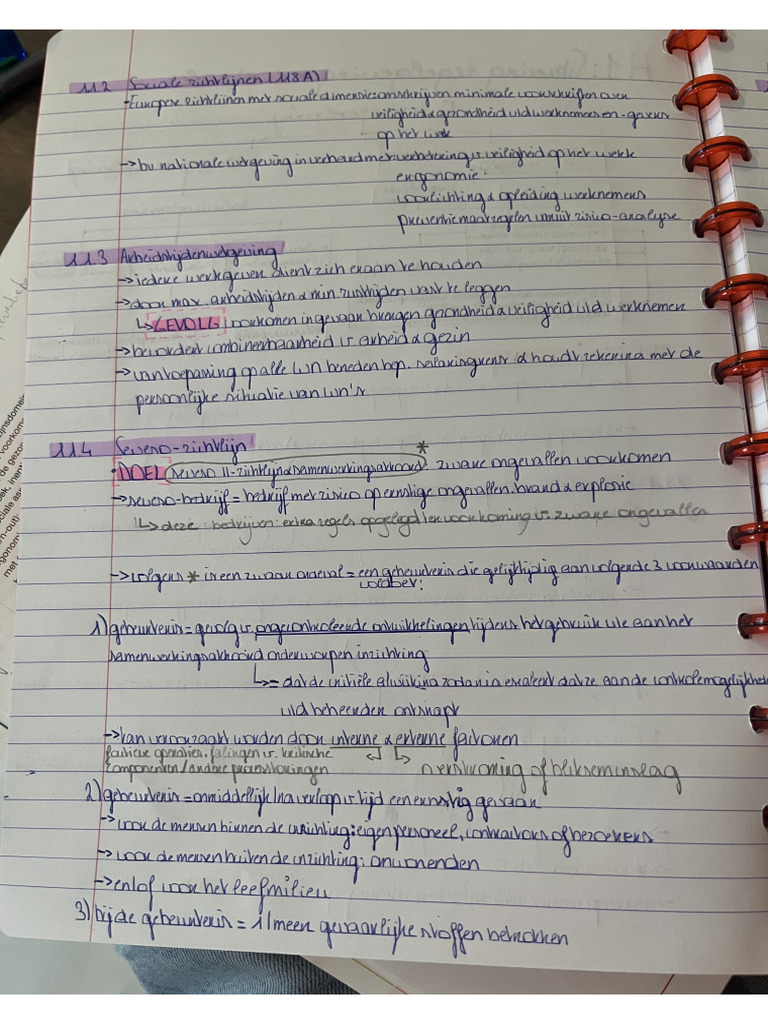 1.1.2 Sociale richtlijnen (118A)
- Europese richtlijnen met sociale dimensie: omschrijven minimale voorschriften over
veiligheid & gezondheid v/d werknemers en -gevers
op het werk
→ bv. nationale wetgeving in verband met verbetering v. veiligheid op het werk
ergonomie
voorlichting & opleiding werknemers
preventiemaatregelen vanuit risico-analyse
1.1.3 Arbeidstijdenwetgeving
→ iedere werkgever dient zich eraan te houden
→ door max. arbeidstijden & min. rusttijden vast te leggen
↳ GEVOLG: voorkomen in gevaar brengen gezondheid & veiligheid v/d werknemer
→ bevordert combineerbaarheid v. arbeid & gezin
→ van toepassing op alle WN beneden bep. salarisgrens & houdt rekening met de
persoonlijke situatie van WN's
1.1.4 Seveso-richtlijn
*
• DOEL (Seveso II-richtlijn & samenwerkingsakkoord): zware ongevallen voorkomen
→ seveso-bedrijf = bedrijf met risico op ernstige ongevallen, brand & explosie
↳ deze bedrijven: extra regels opgelegd ter voorkoming v. zware ongevallen
→ volgens * is een zwaar ongeval = een gebeurtenis die gelijktijdig aan volgende 3 voorwaarden
voldoet:
1) gebeurtenis = gevolg v. ongecontroleerde ontwikkelingen tijdens het gebruik v/e aan het
samenwerkingsakkoord onderworpen inrichting
↳ = dat de initiële afwijking zodanig escaleert dat ze aan de controlemogelijkheden
v/d beheerder ontsnapt
→ kan veroorzaakt worden door interne & externe factoren
foutieve operaties, falingen v. kritische
componenten/andere processtoringen
overstroming of blikseminslag
2) gebeurtenis = onmiddellijk/na verloop v. tijd een ernstig gevaar
→ voor de mensen binnen de inrichting: eigen personeel, contractors of bezoekers
→ voor de mensen buiten de inrichting: omwonenden
→ en/of voor het leefmilieu
3) bij de gebeurtenis = 1/meer gevaarlijke stoffen betrokken